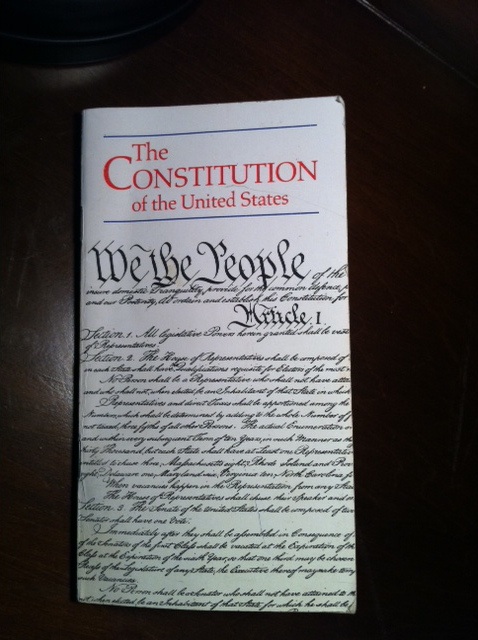 The
CONSTITUTION
of the United States
We the People of the
insure domestic Tranquility, provide for the common defence, p
and our Posterity, do ordain and establish this Constitution for
Article. I.
Section. 1. All legislative Powers herein granted shall be vest
of Representatives.
Section. 2. The House of Representatives shall be composed of
in each State shall have Qualifications requisite for Electors of the most n
No Person shall be a Representative who shall not have attai
and who shall not, when elected, be an Inhabitant of that State in which
Representatives and direct Taxes shall be apportioned among the
Numbers, which shall be determined by adding to the whole Number of f
not taxed, three fifths of all other Persons. The actual Enumeration
and within every subsequent Term of ten Years, in such Manner as the
thirty Thousand, but each State shall have at Least one Representative
entitled to chuse three, Massachusetts eight, Rhode Island and Prov
eight, Delaware one, Maryland six, Virginia ten, North Carolina f
When vacancies happen in the Representation from any State
The House of Representatives shall chuse their Speaker and o
Section. 3. The Senate of the United States shall be composed of two
Senator shall have one Vote.
Immediately after they shall be assembled in Consequence of
of the Senators of the first Class shall be vacated at the Expiration of the
Class at the Expiration of the sixth Year, so that one third may be chosen
Recess of the Legislature of any State, the Executive thereof may make temp
such Vacancies.
No Person shall be a Senator who shall not have attained to th
not, when elected, be an Inhabitant of that State for which he shall be